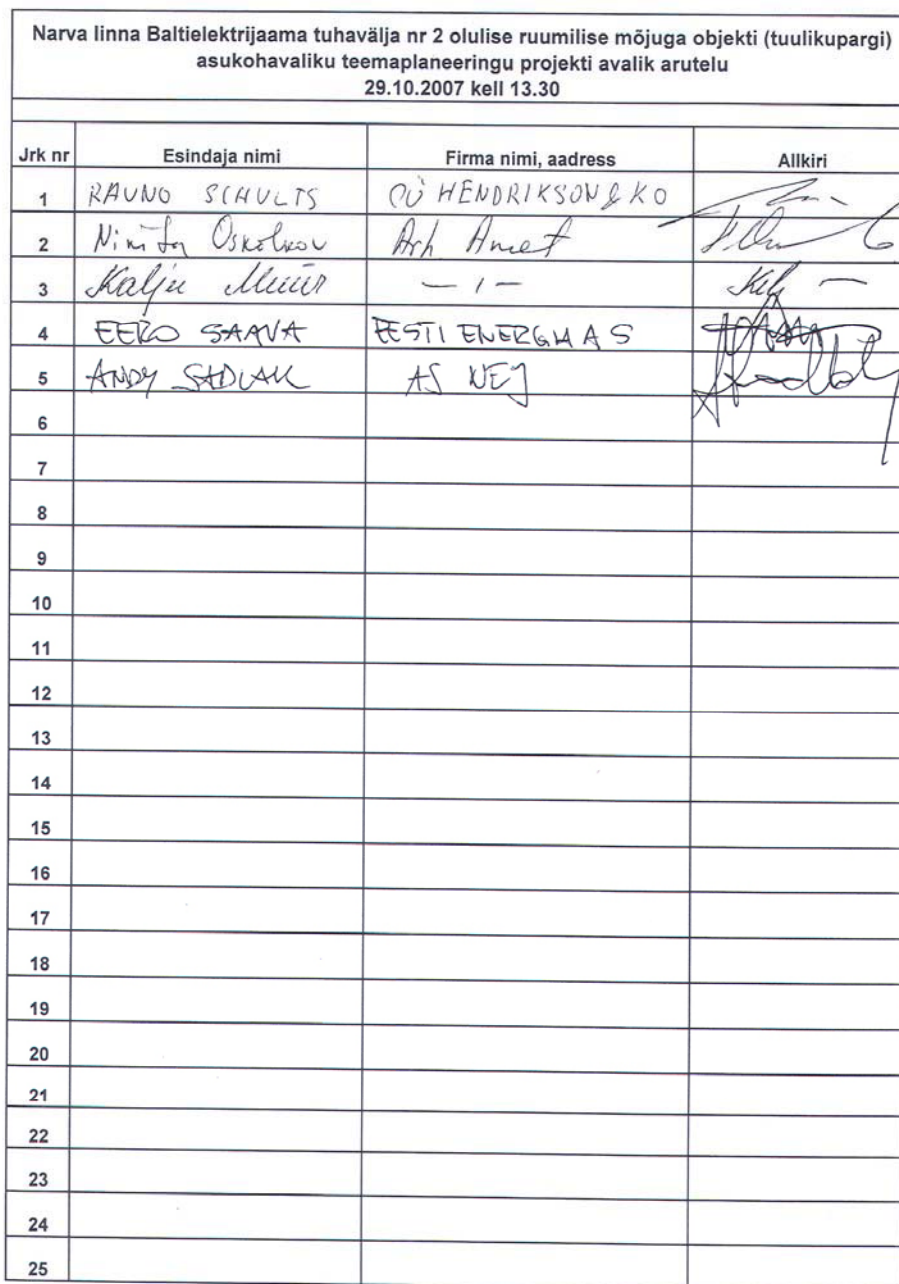 Narva linna Baltielektrijaama tuhavälja nr 2 olulise ruumilise mõjuga objekti (tuulikupargi)
asukohavaliku teemaplaneeringu projekti avalik arutelu
29.10.2007 kell 13.30
Jrk nr Esindaja nimi Firma nimi, aadress Allkiri
1 RAUNO SCHULTS OÜ HENDRIKSON & KO
2 Nikita Oskolkov Arh Amet
3 Kalju Müür — 1 —
4 EERO SAAVA EESTI ENERGIA AS
5 ANDY SADLAK AS NEJ
6
7
8
9
10
11
12
13
14
15
16
17
18
19
20
21
22
23
24
25